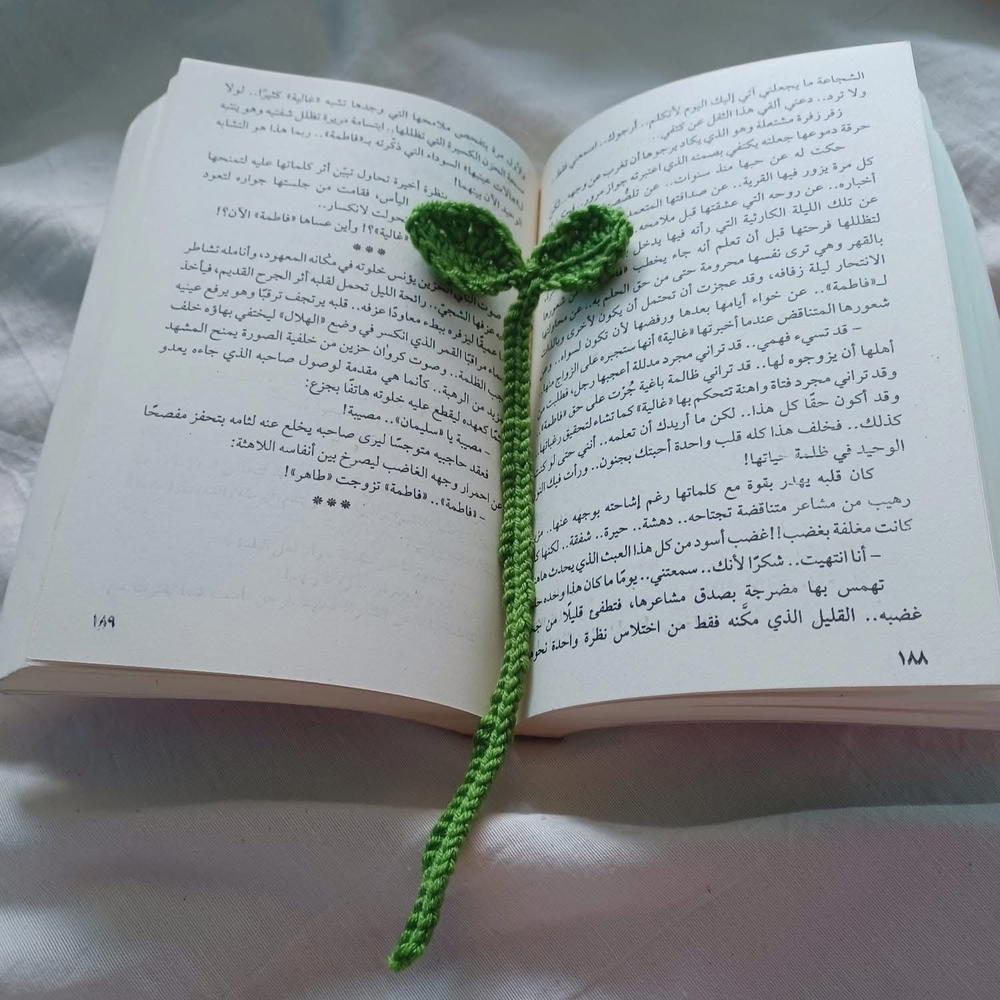 الشجاعة ما يجعلني آتي إليك اليوم لأتكلم.. أرجوك.. اسمعني فقط
ولا ترد.. دعني ألقي هذا الثقل عن كتفي..
زفر زفرة مشتعلة وهو الذي يكاد يرجوها أن تغرب عن وجهه لكن
حرقة دموعها جعلته يكتفي بصمته الذي اعتبرته جواز مرور
حكت له عن حبها منذ سنوات.. عن تلصصها
كل مرة يزور فيها القرية.. عن صداقتها المتعمدة
أخباره.. عن روحه التي عشقتها قبل ملامحه
عن تلك الليلة الكارثية التي رأته فيها يدخل
لتظللها فرحتها قبل أن تعلم أنه جاء يخطب
بالقهر وهي ترى نفسها محرومة حتى من حق الحلم به.. عن
الانتحار ليلة زفافه، وقد عجزت أن تحتمل أن يكون لأخرى وبالذات
لـ«فاطمة».. عن خواء أيامها بعدها ورفضها لأن تكون لسواه.. وعن
شعورها المتناقض عندما أخبرتها «غالية» أنها ستجبره على الزواج منها
– قد تسيء فهمي.. قد تراني مجرد مدللة أعجبها رجل، فطلبت من
أهلها أن يزوجوه لها.. قد تراني ظالمة باغية جُرْت على حق «فاطمة»
وقد تراني مجرد فتاة واهنة تتحكم بها «غالية» كما تشاء لتحقيق رغباتها
وقد أكون حقًا كل هذا.. لكن ما أريدك أن تعلمه.. أنني حتى لو كنت
كذلك.. فخلف هذا كله قلب واحدة أحبتك بجنون.. ورأت فيك النور
الوحيد في ظلمة حياتها!
كان قلبه يهدر بقوة مع كلماتها رغم إشاحته بوجهه عنها..
رهيب من مشاعر متناقضة تجتاحه.. دهشة.. حيرة.. شفقة.. لكنها
كانت مغلفة بغضب!! غضب أسود من كل هذا العبث الذي يحدث
– أنا انتهيت.. شكرًا لأنك.. سمعتني.. يومًا ما كان هذا وحده
تهمس بها مضرجة بصدق مشاعرها، فتطفئ قليلًا من
غضبه.. القليل الذي مكَّنه فقط من اختلاس نظرة واحدة نحو
١٨٨
لأول مرة يتفحص ملامحها التي وجدها تشبه «غالية» كثيرًا.. لولا
الحزن الكسيرة التي تظللها.. ابتسامة مريرة تظلل شفتيه وهو ينتبه
لهالات عينيها السوداء التي ذكَّرته بـ«فاطمة».. ربما هذا هو التشابه
الوحيد الآن بينهما!
نظرة أخيرة تحاول تبيّن أثر كلماتها عليه لتمنحها
اليأس، فقامت من جلستها جواره لتعود
تحولت لانكسار..
«غالية»؟! وأين عساها «فاطمة» الآن؟!
***
صوت الناي الحزين يؤنس خلوته في مكانه المعهود، وأنامله تشاطر
عزفها الشجي.. رائحة الليل تحمل لقلبه أثر الجرح القديم، فيأخذ
عميقًا ليزفره ببطء معاودًا عزفه.. قلبه يرتجف ترقبًا وهو يرفع عينيه
مراقبًا القمر الذي انكسر في وضع «الهلال» ليختفي بهاؤه خلف
الظلمة.. وصوت كروان حزين من خلفية الصورة يمنح المشهد
من الرهبة.. كأنما هي مقدمة لوصول صاحبه الذي جاءه يعدو
كعهده ليقطع عليه خلوته هاتفًا بجزع:
– مصيبة يا «سليمان».. مصيبة!
فعقد حاجبيه متوجسًا ليرى صاحبه يخلع عنه لثامه بتحفز مفصحًا
عن احمرار وجهه الغاضب ليصرخ بين أنفاسه اللاهثة:
– «فاطمة».. «فاطمة» تزوجت «طاهر»!
***
١٨٩